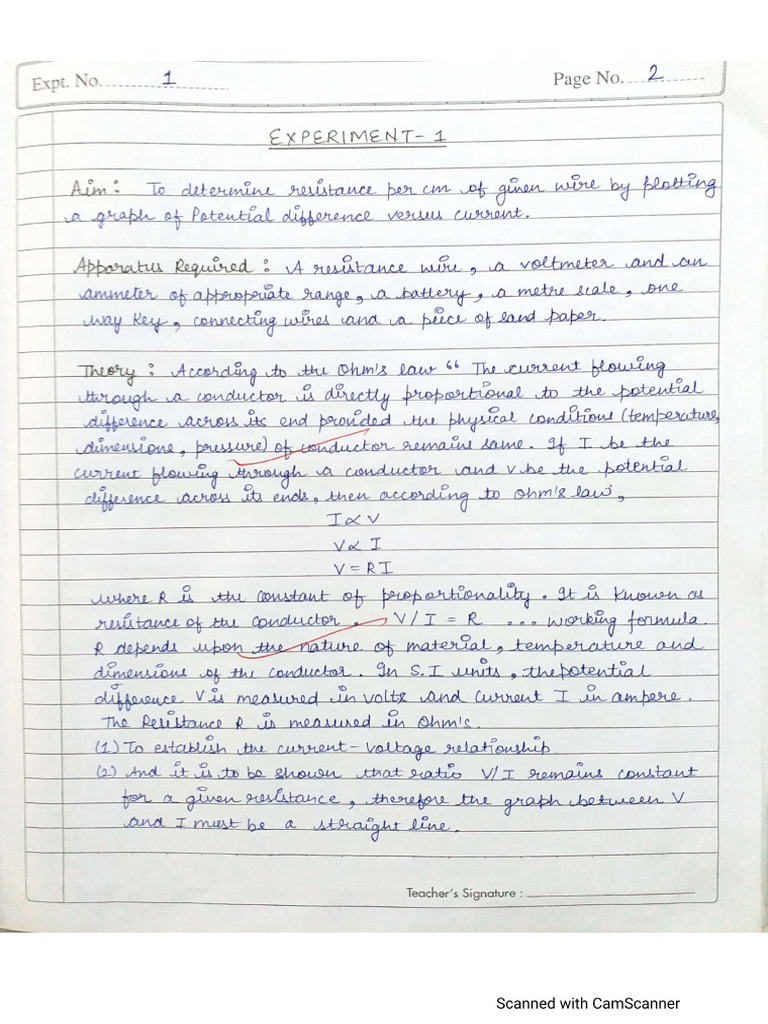 Expt. No. 1
Page No. 2
EXPERIMENT-1
Aim: To determine resistance per cm of given wire by plotting
a graph of Potential difference versus current.
Apparatus Required: A resistance wire, a voltmeter and an
ammeter of appropriate range, a battery, a metre scale, one
way key, connecting wires and a peice of sand paper.
Theory: According to the Ohm's law “ The current flowing
through a conductor is directly proportional to the potential
difference across its end provided the physical conditions (temperature,
dimensione, pressure) of conductor remains same. If I be the
current flowing through a conductor and v be the potential
difference across its ends, then according to ohm's law,
I ∝ V
V ∝ I
V = RI
where R is the constant of proportionality. It is known as
resistance of the conductor. V/I = R ... working formula.
R depends upon the nature of material, temperature and
dimensions of the conductor. In S.I units, the potential
difference V is measured in volts and current I in ampere.
The Resistance R is measured in Ohm's.
(1) To establish the current-voltage relationship.
(2) And it is to be shown that ratio V/I remains constant
for a given resistance, therefore the graph between V
and I must be a straight line.
Teacher's Signature :
Scanned with CamScanner